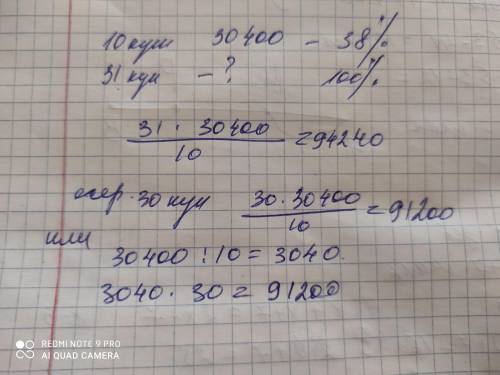 10 куш 30400 – 38%
31 кун – ? 100%
31 · 30400 / 10 = 94240
эгер · 30 кун 30 · 30400 / 10 = 91200
или
30400 : 10 = 3040.
3040 · 30 = 91200
REDMI NOTE 9 PRO
AI QUAD CAMERA